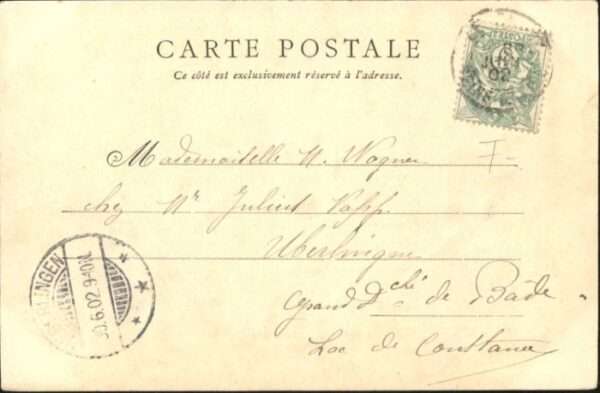 CARTE POSTALE
Ce côté est exclusivement réservé à l'adresse.
Mademoiselle M. Wagner
chez Mr Julius Papp.
Uberlingen
Grand Dché de Bade
Lac de Constance
LINGEN
30.6.02.9-10V.
02